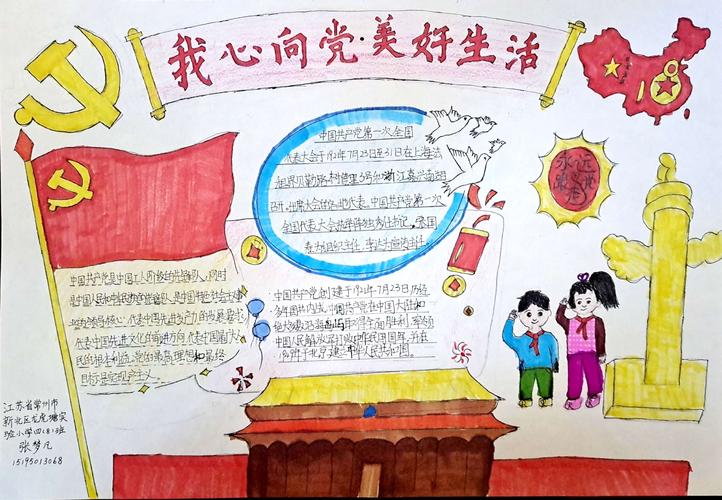 我心向党·美好生活
中国共产党第一次全国
代表大会于1921年7月23日至31日在上海法
租界贝勒路树德里3号和浙江嘉兴南湖
召开,出席大会的
代表,中国共产党第一次
全国代表大会选举陈独秀任书记,张国
焘为组织主任,李达为宣传主任。
永远
跟党
走
中国共产党是中国工人阶级的先锋队,同时
是中国人民和中华民族的先锋队,是中国特色社会主义
事业的领导核心,代表中国先进生产力的发展要求,
代表中国先进文化的前进方向,代表中国最广大人
民的根本利益,党的最高理想和最终
目标是实现共产主义
中国共产党创建于1921年7月23日
中国共产党在中国大陆
中国人民解放
中华人民共和国。
江苏省常州市
新北区龙虎塘实
验小学四(8)班
张梦凡
15195013068